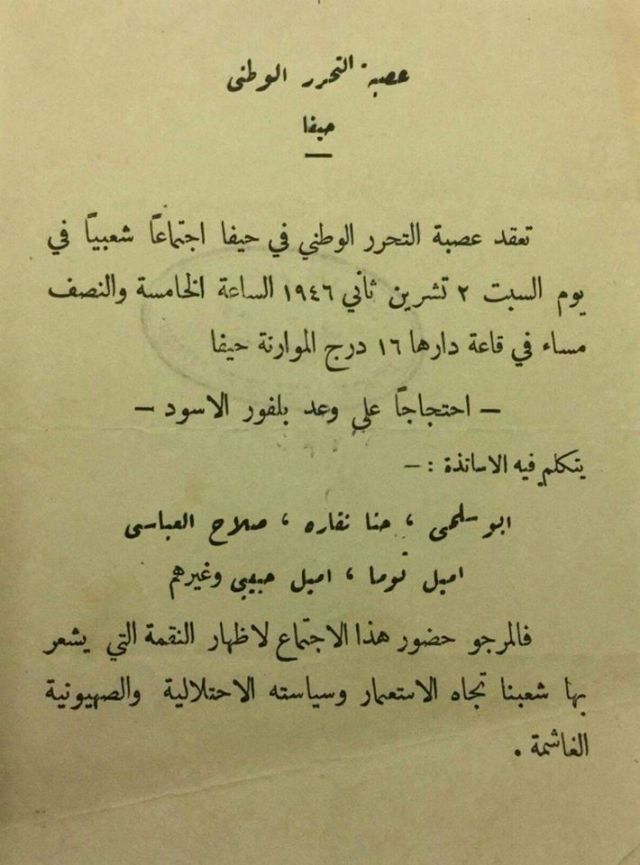 عصبة التحرر الوطني
حيفا
تعقد عصبة التحرر الوطني في حيفا اجتماعاً شعبياً في
يوم السبت ٢ تشرين ثاني ١٩٤٦ الساعة الخامسة والنصف
مساء في قاعة دارها ١٦ درج الموارنة حيفا
— احتجاجاً على وعد بلفور الاسود —
يتكلم فيه الاساتذة : —
ابو سلمى ، حنا نقاره ، صلاح العباسى
اميل توما ، اميل حبيبي وغيرهم
فالمرجو حضور هذا الاجتماع لاظهار النقمة التي يشعر
بها شعبنا تجاه الاستعمار وسياسته الاحتلالية والصهيونية
الغاشمة .